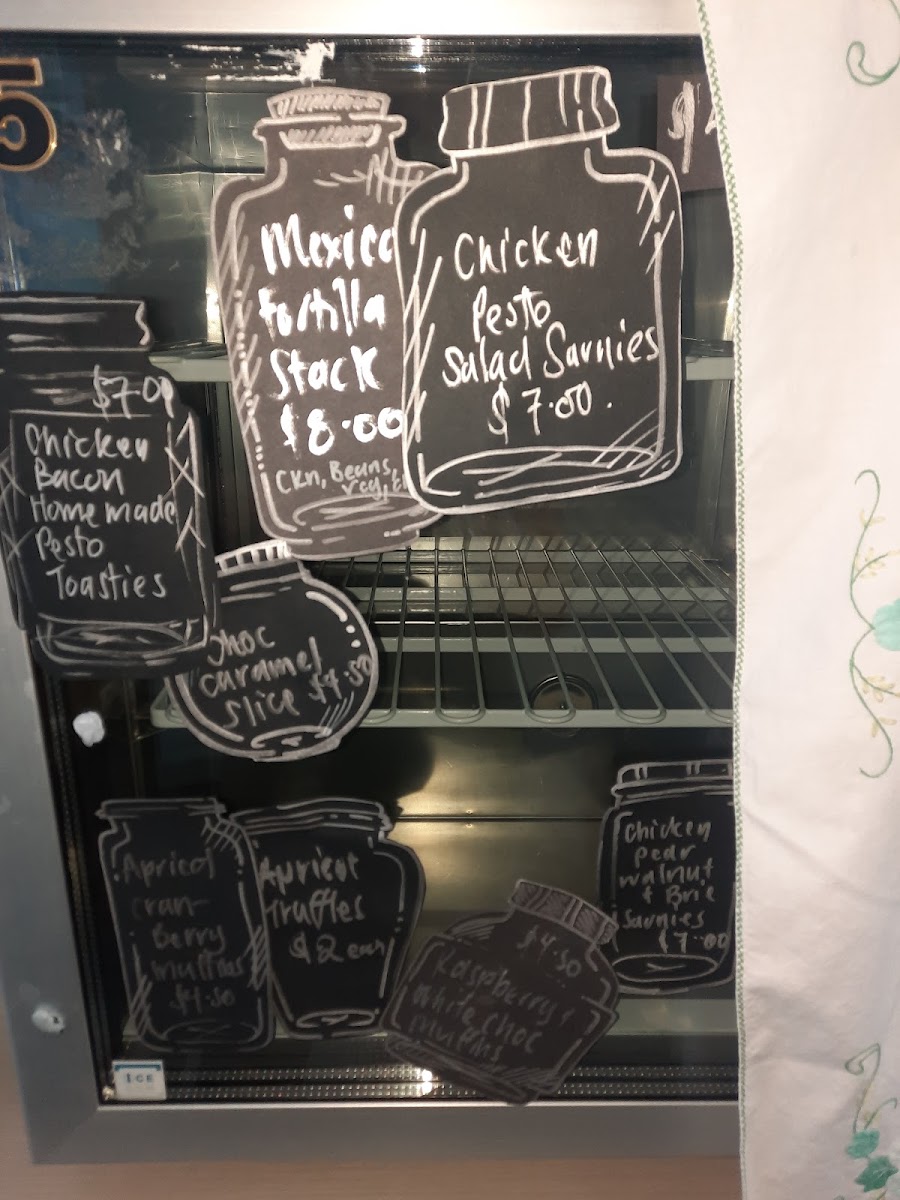 5
Mexico
tortilla
Stack
$8.00
Ckn, Beans,
Chicken
Pesto
Salad Sarnies
$7.00.
$7.00
Chicken
Bacon
Home made
Pesto
Toasties
Choc
caramel
slice $4.50
Apricot
cran-
Berry
muffins
$4.50
Apricot
Truffles
$2 each
$4.50
Raspberry +
White choc
muffins
Chicken
pear
walnut
+ Brie
Sarnies
$7.00
ICE